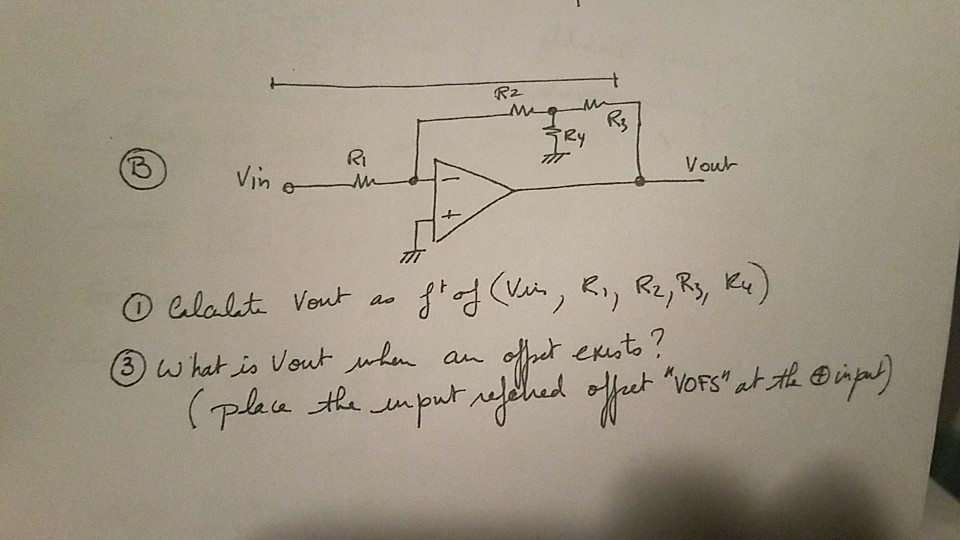 R2
R3
R4
B
R1
Vin
Vout
−
+
① Calculate Vout as f^t of (Vin, R1, R2, R3, R4)
③ What is Vout when an offset exists?
(place the input refered offset "VOFS" at the ⊕ input)